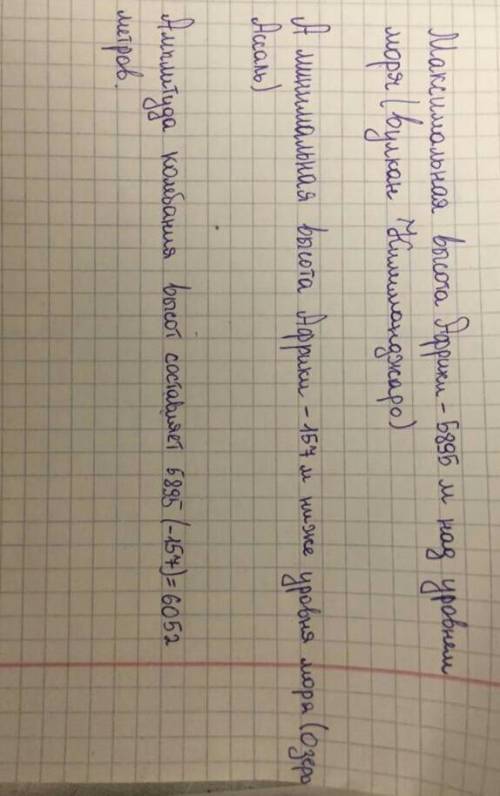 Максимальная высота Африки - 5895 м над уровнем
моря (вулкан Килиманджаро)
А минимальная высота Африки - 157 м ниже уровня моря (Озеро
Ассаль)
Амплитуда колебания высот составляет 5895 (-157) = 6052
метров.